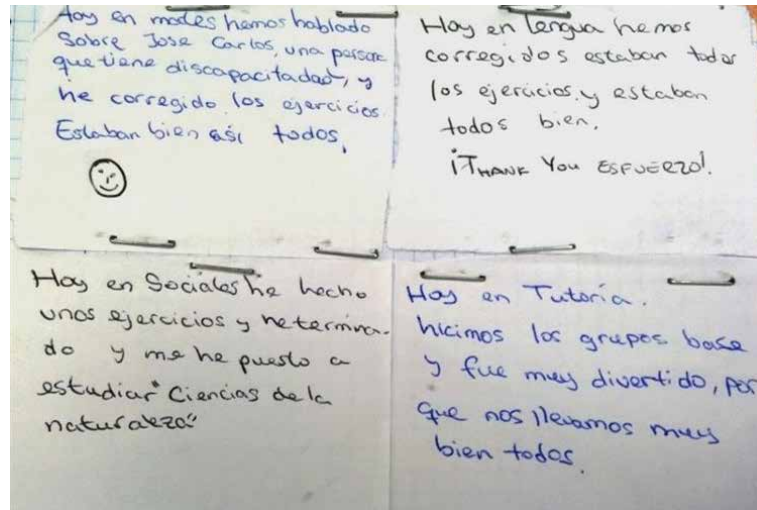 Hoy en mates hemos hablado
Sobre Jose Carlos, una persona
que tiene discapacitadad, y
he corregido los ejercicios.
Estaban bien así todos.
Hoy en lengua hemos
corregidos estaban todos
los ejercicios y estaban
todos bien.
¡THANK YOU ESFUERZO!.
Hoy en Sociales he hecho
unos ejercicios y he termina-
do y me he puesto a
estudiar "Ciencias de la
naturaleza"
Hoy en Tutoría.
hicimos los grupos base
y fue muy divertido, por
que nos llevamos muy
bien todos.